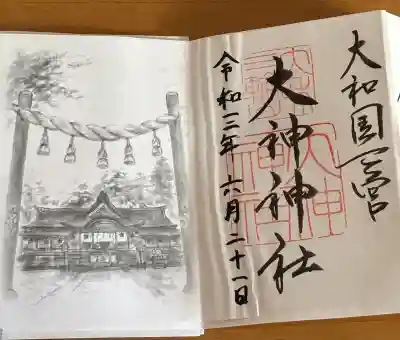 大和国一之宮
大神神社
令和三年六月二十一日
大神神社